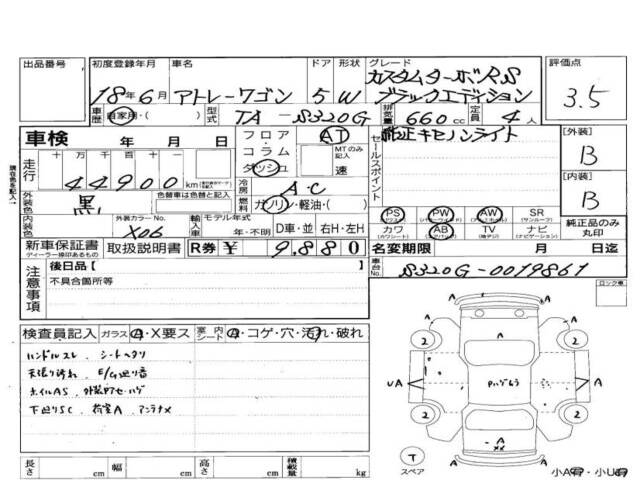 出品番号 初度登録年月 車名 ドア 形状 グレード 評価点
18年6月 アトレーワゴン 5 W カスタムターボRS ブラックエディション 3.5
車歴 自家用・( ) 型式 TA-S320G 排気量 660cc 定員 4人
車検 年 月 日 フロア AT セールスポイント 純正キセノンライト [外装]
コラム MTのみ記入 B
走行 十万千百十一 ダッシュ 速
44900km 冷房 A・C [内装]
外装色 黒 色替車は色替と記入 燃料 ガソリン・軽油・( ) B
PS PW AW SR
(パワステ) (パワーウインド) (サンルーフ)
内装色 外装カラーNo. X06 輸入車 モデル年式 年・不明 D車・並 右H・左H カワ AB TV ナビ 純正品のみ丸印
(カワシート) (エアバック) (ナビゲーション)
新車保証書 取扱説明書 R券 ¥ 9,880 名変期限 月 日迄
ディーラー捺印あるもの
注意事項 後日品【 】 車台No. S320G-0019861
不具合箇所等 ロック車
検査員記入 ガラス A・X要ス 室内シート A・コゲ・穴・汚れ・破れ
ハンドルスレ、シートヘタリ
天張り汚れ、E/G廻り音
ホイルAS、
下廻りSC、荷室A、アンテナX
A A
2 2
A
UA A A
A
2 2
A
XX
A
T
スペア
小A・小U
長さ cm 幅 cm 高さ cm 積載量 kg
現在色を記入